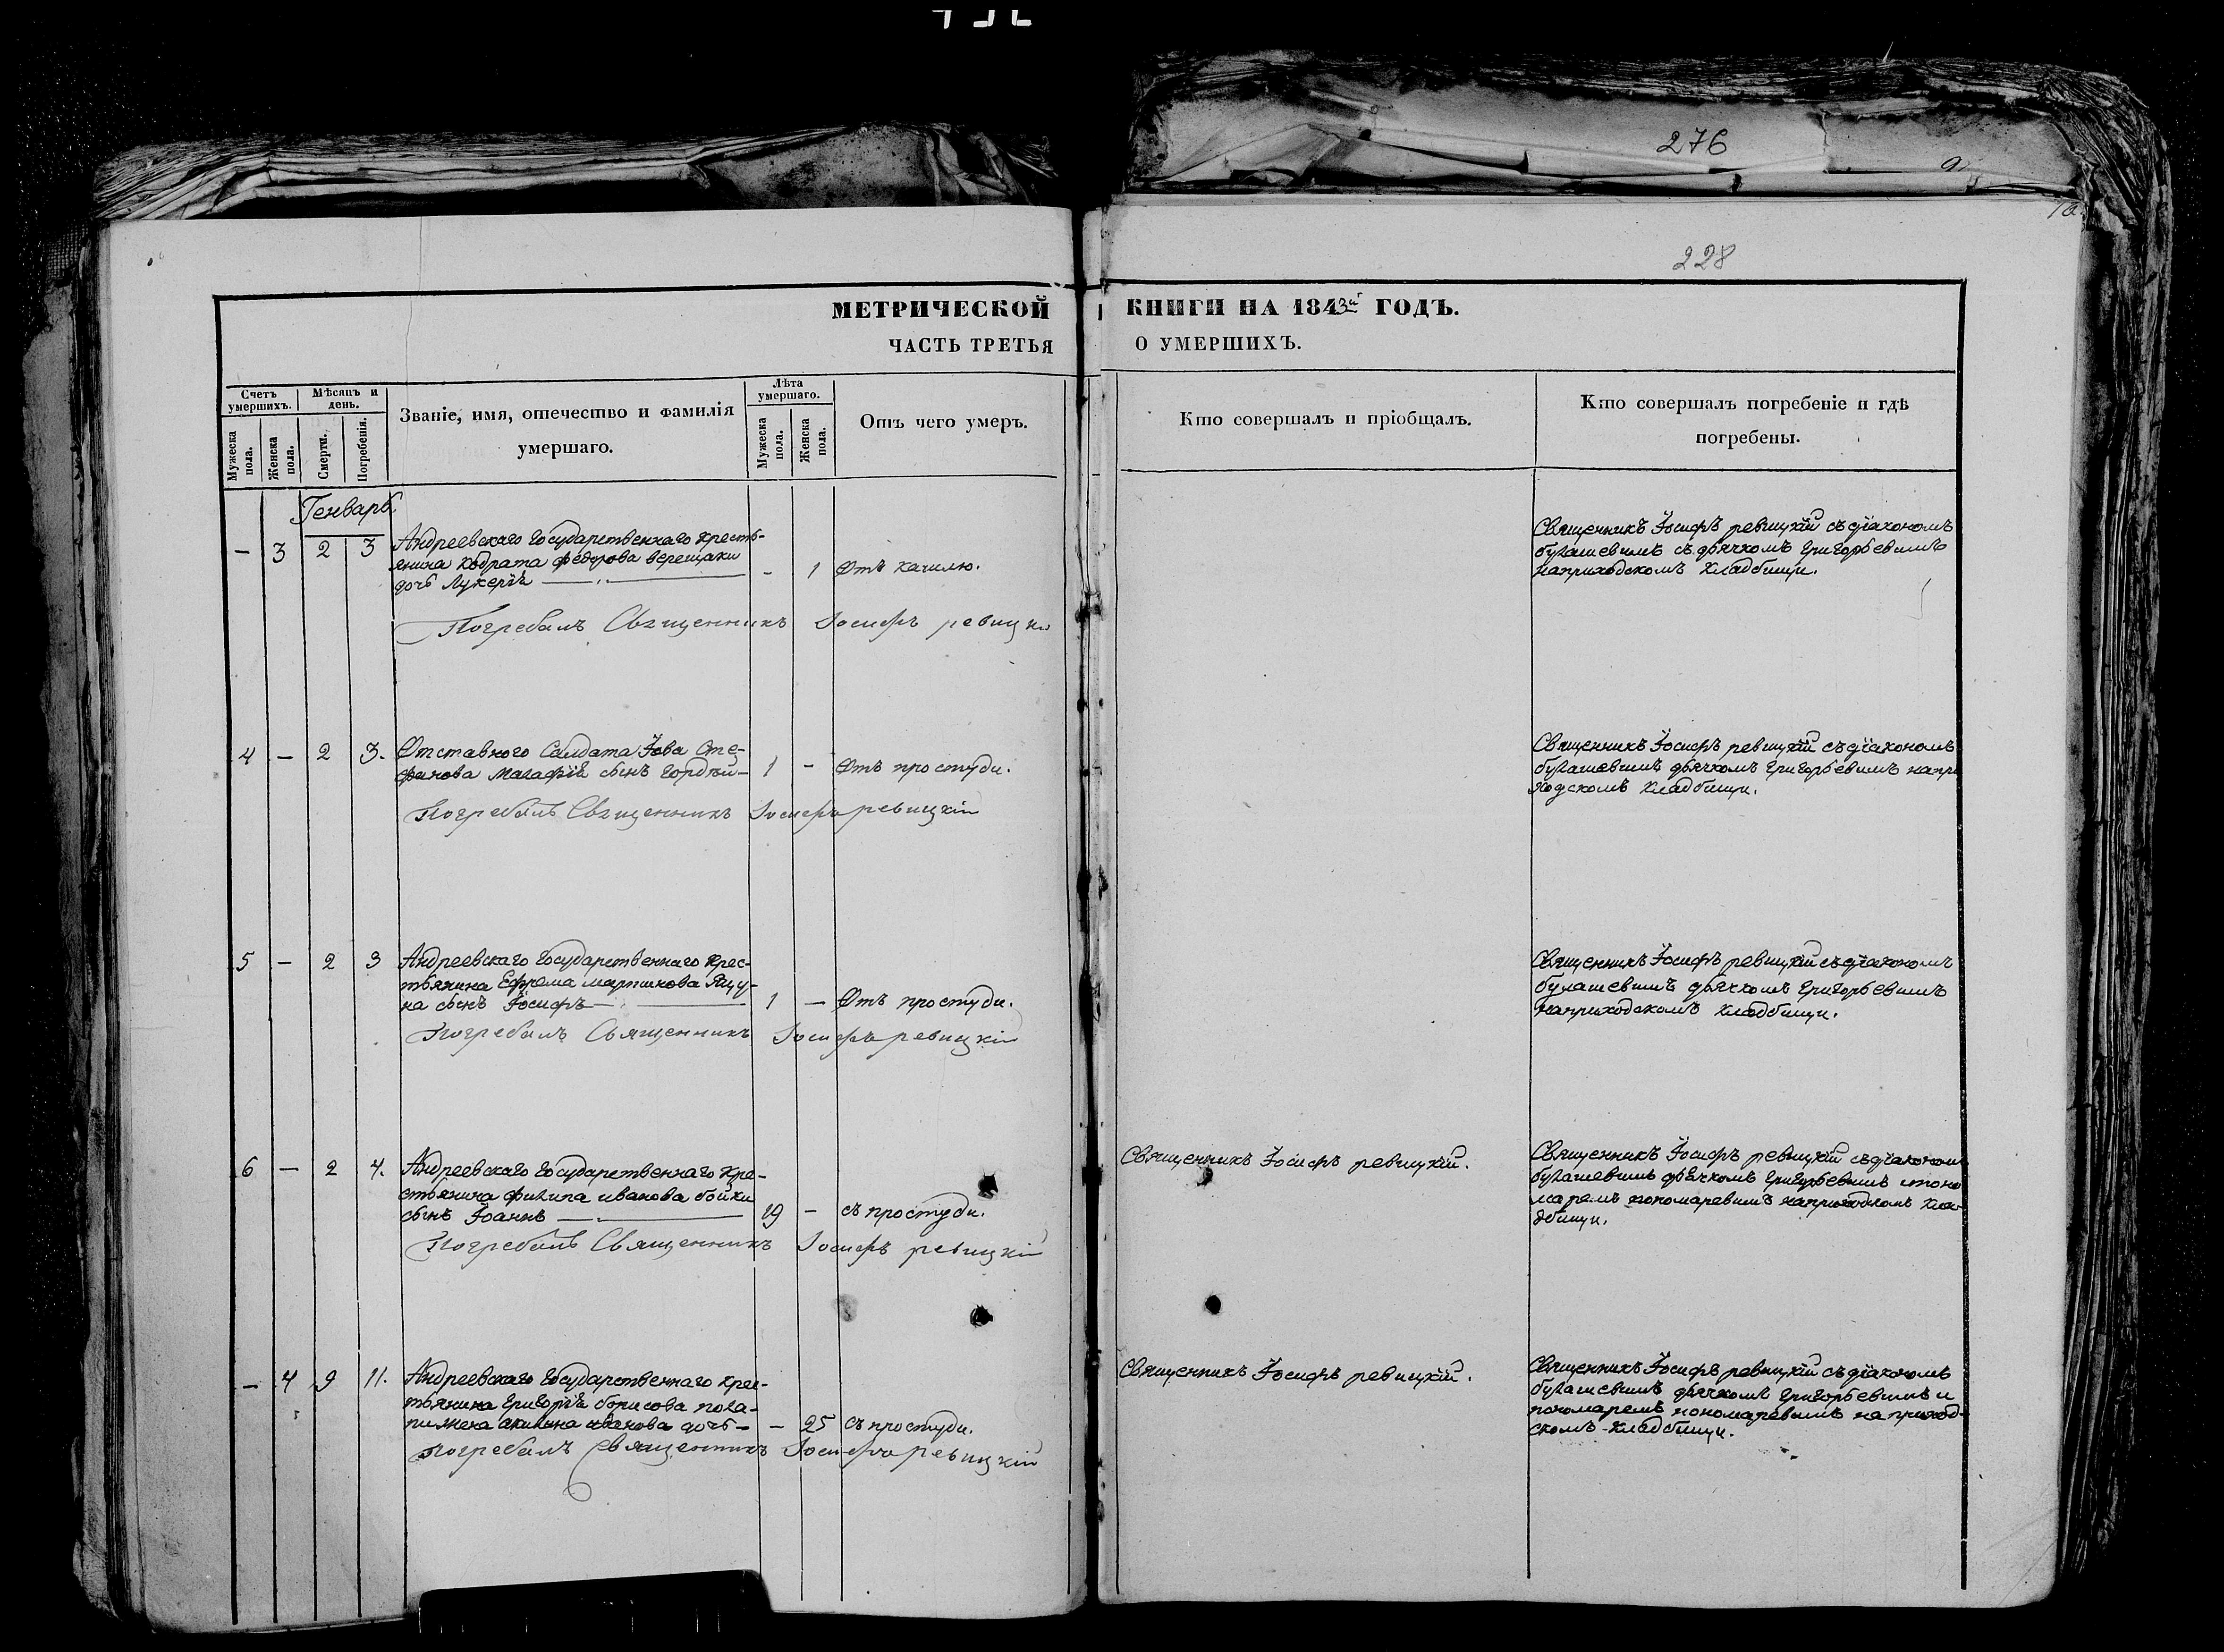 276
228
МЕТРИЧЕСКОЙ КНИГИ НА 1843й ГОДЪ.
ЧАСТЬ ТРЕТЬЯ О УМЕРШИХЪ.
Счетъ умершихъ.
Мужеска пола.
Женска пола.
Мѣсяцъ и день.
Смерти.
Погребенія.
Званіе, имя, отечество и фамилія
умершаго.
Лѣта умершаго.
Мужеска пола.
Женска пола.
Отъ чего умеръ.
Кто совершалъ и пріобщалъ.
Кто совершалъ погребеніе и гдѣ
погребены.
Генварь
— 3 2 3
Андреевскаго Государственнаго кресть-
янина Кодрата федорова верещаки
дочь Лукерія
- 1 Отъ кашлю.
Погребалъ Священникъ Іосифъ ревицкі
Священникъ Іосифъ ревицкій съ діакономъ
булашевимъ съ дьячкомъ григорьевимъ
наприходскомъ кладбищи.
4 — 2 3.
Отставного Салдата Іова Сте-
фанова сынъ гордѣй
1 - Отъ простуди.
Погребалъ Священникъ Іосифъ ревицкій
Священникъ Іосифъ ревицкій съ діакономъ
булашевимъ дьячкомъ григорьевимъ напри
ходскомъ кладбищи.
5 — 2 3
Андреевскаго Государственнаго крес-
тьянина Ефрема мартинова Яцу-
на сынъ Іосифъ
1 — Отъ простуди.
Погребалъ Священникъ Іосифъ ревицкій
Священникъ Іосифъ ревицкій съ діакономъ
булашевимъ дьячкомъ григорьевимъ
наприходскомъ кладбищи.
6 — 2 4.
Андреевскаго Государственнаго кре-
стьянина филипа иванова бойки
сынъ Іоаннъ
19 — съ простуди.
Погребалъ Священникъ Іосифъ ревицкій
Священникъ Іосифъ ревицкій.
Священникъ Іосифъ ревицкій съ діакономъ
булашевимъ дьячкомъ григорьевимъ ипоно
маремъ пономаревимъ наприходскомъ кла
дбищи.
— 4 9 11.
Андреевскаго Государственнаго крес-
тьянина григорія борисова пола-
иванова дочь
— 25 съ простуди.
Погребалъ Священникъ Іосифъ ревицкій
Священникъ Іосифъ ревицкій.
Священникъ Іосифъ ревицкій съ діакономъ
булашевимъ дьячкомъ григорьевимъ и
пономаремъ пономаревимъ на приход-
скомъ кладбищи.